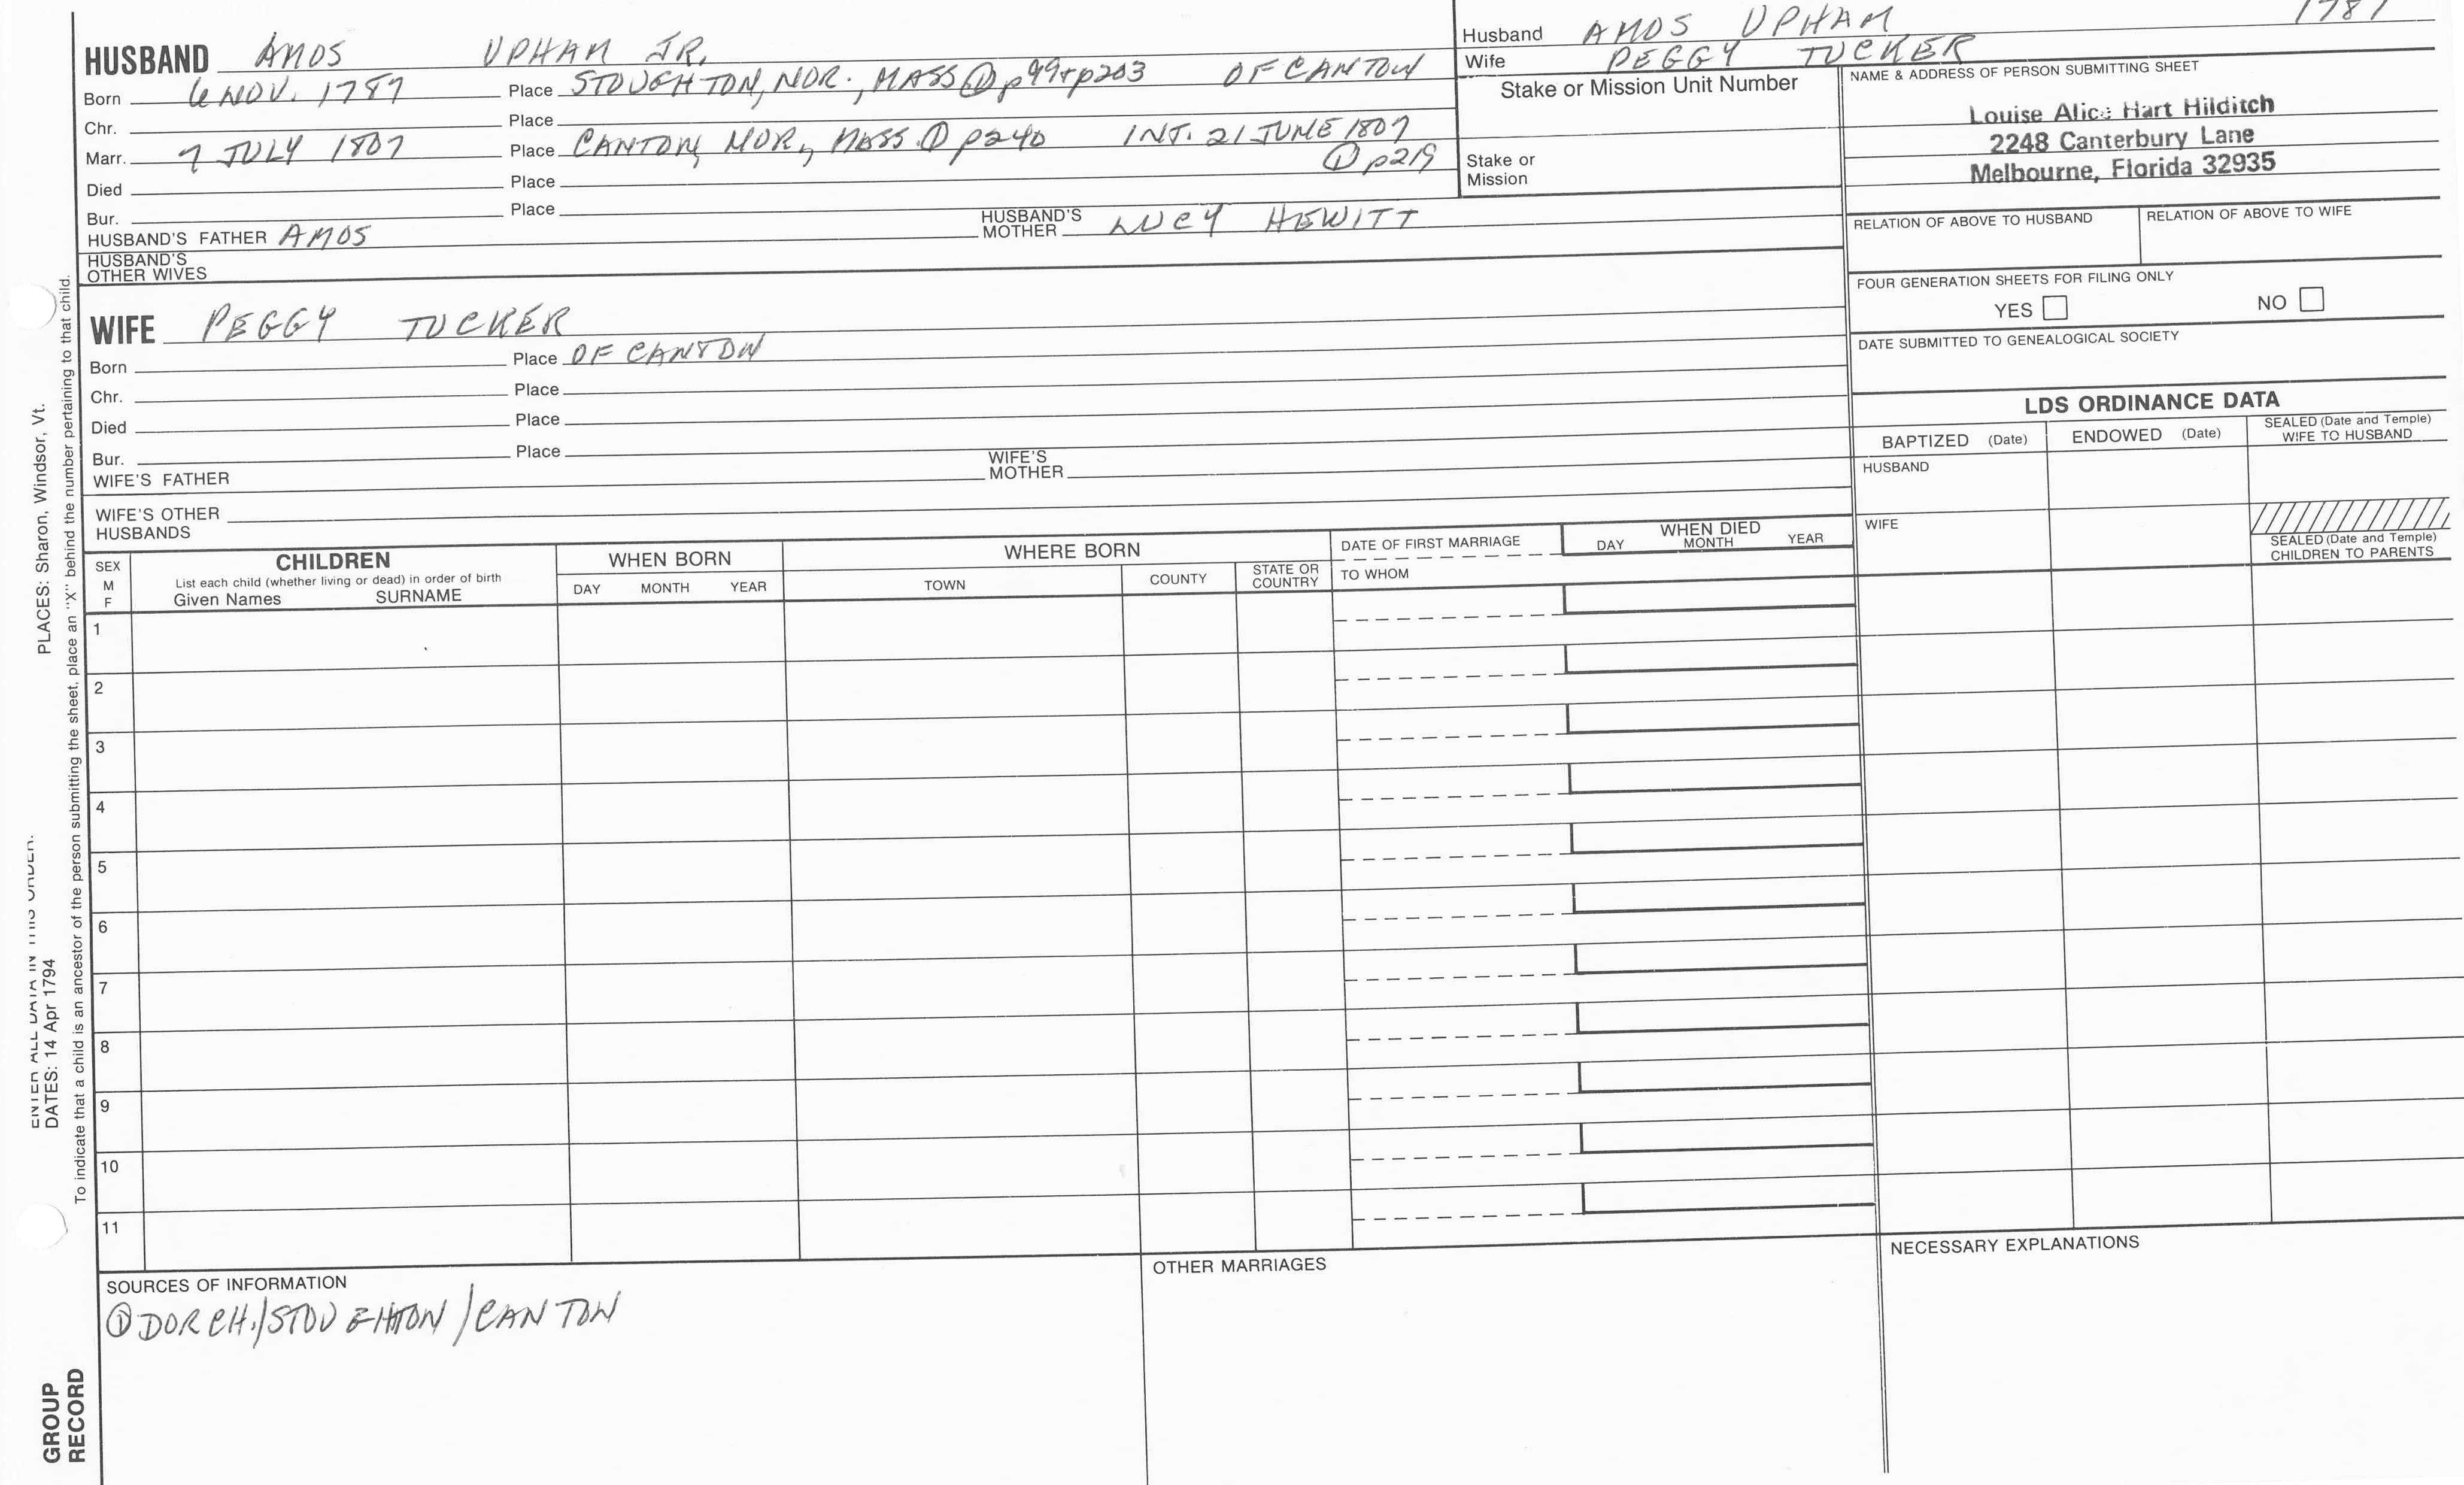 HUSBAND AMOS UPHAM JR.
Born 6 NOV. 1787 Place STOUGHTON, NOR., MASS ① p99+p203 OF CANTON
Chr. Place
Marr. 7 JULY 1807 Place CANTON, NOR., MASS. ① p240 INT. 21 JUNE 1807
① p219
Died Place
Bur. Place
HUSBAND'S FATHER AMOS HUSBAND'S MOTHER LUCY HEWITT
HUSBAND'S
OTHER WIVES
Husband AMOS UPHAM 1787
Wife PEGGY TUCKER
Stake or Mission Unit Number
Stake or
Mission
NAME & ADDRESS OF PERSON SUBMITTING SHEET
Louise Alice Hart Hilditch
2248 Canterbury Lane
Melbourne, Florida 32935
RELATION OF ABOVE TO HUSBAND RELATION OF ABOVE TO WIFE
FOUR GENERATION SHEETS FOR FILING ONLY
YES NO
DATE SUBMITTED TO GENEALOGICAL SOCIETY
WIFE PEGGY TUCKER
Born Place OF CANTON
Chr. Place
Died Place
Bur. Place
WIFE'S FATHER WIFE'S MOTHER
WIFE'S OTHER
HUSBANDS
LDS ORDINANCE DATA
BAPTIZED (Date) ENDOWED (Date) SEALED (Date and Temple)
WIFE TO HUSBAND
HUSBAND
WIFE
SEALED (Date and Temple)
CHILDREN TO PARENTS
SEX
M
F
CHILDREN
List each child (whether living or dead) in order of birth
Given Names SURNAME
WHEN BORN
DAY MONTH YEAR
WHERE BORN
TOWN COUNTY STATE OR
COUNTRY
DATE OF FIRST MARRIAGE
TO WHOM
WHEN DIED
DAY MONTH YEAR
1
2
3
4
5
6
7
8
9
10
11
SOURCES OF INFORMATION
① DORCH./STOUGHTON/CANTON
OTHER MARRIAGES
NECESSARY EXPLANATIONS
GROUP
RECORD
ENTER ALL DATA IN THIS ORDER:
DATES: 14 Apr 1794 PLACES: Sharon, Windsor, Vt.
To indicate that a child is an ancestor of the person submitting the sheet, place an "X" behind the number pertaining to that child.